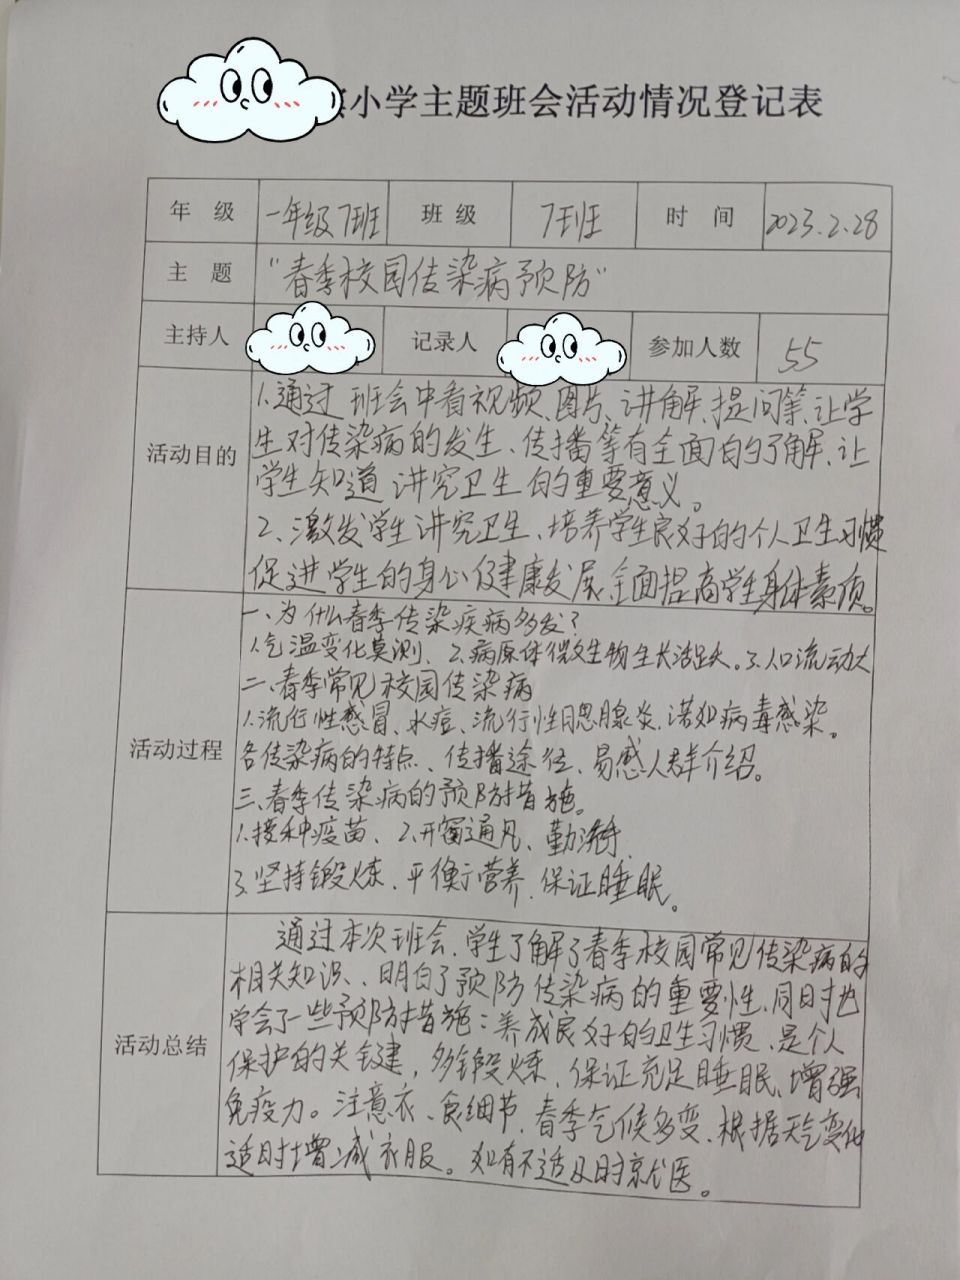 小学主题班会活动情况登记表
年 级 一年级7班 班 级 7班 时 间 2023.2.28
主 题 "春季校园传染病预防"
主持人 记录人 参加人数 55
活动目的
1.通过班会中看视频、图片、讲解、提问等、让学
生对传染病的发生、传播等有全面的了解、让
学生知道讲究卫生的重要意义。
2、激发学生讲究卫生、培养学生良好的个人卫生习惯
促进学生的身心健康发展,全面提高学生身体素质。
活动过程
一、为什么春季传染疾病多发?
1.气温变化莫测、2.病原体微生物生长活跃。3.人口流动大
二、春季常见校园传染病
1.流行性感冒、水痘、流行性腮腺炎.诺如病毒感染。
各传染病的特点、传播途径、易感人群介绍。
三、春季传染病的预防措施。
1.接种疫苗、2.开窗通风、勤洗手
3.坚持锻炼、平衡营养.保证睡眠。
活动总结
通过本次班会、学生了解了春季校园常见传染病的
相关知识、明白了预防传染病的重要性,同时也
学会了一些预防措施:养成良好的卫生习惯、是个人
保护的关键,多锻炼、保证充足睡眠、增强
免疫力。注意衣、食细节、春季气候多变、根据天气变化
适时增减衣服。如有不适及时就医。